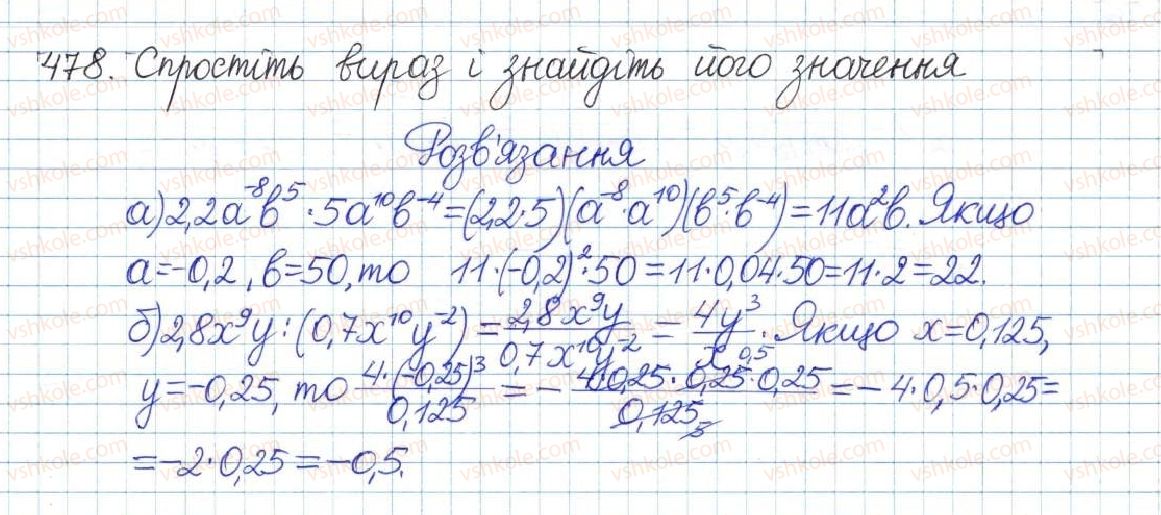 478. Спростіть вираз і знайдіть його значення
Розв'язання
а) 2,2a⁻⁸b⁵ · 5a¹⁰b⁻⁴ = (2,2·5)(a⁻⁸·a¹⁰)(b⁵·b⁻⁴) = 11a²b. Якщо
a = -0,2, b = 50, то 11·(-0,2)²·50 = 11·0,04·50 = 11·2 = 22.
б) 2,8x⁹y : (0,7x¹⁰y⁻²) = 2,8x⁹y / 0,7x¹⁰y⁻² = 4y³ / x. Якщо x = 0,125,
y = -0,25, то 4·(-0,25)³ / 0,125 = - 4·0,25·0,25·0,25 / 0,125 = -4·0,5·0,25 =
= -2·0,25 = -0,5.